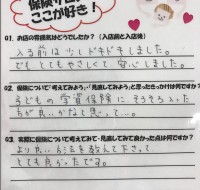 ここが好き!
01. お店の雰囲気はどうでしたか?(入店前と入店後)
入る前は少しドキドキしました。
でもとてもやさしくて安心しました。
02. 保険について「考えてみよう」・「見直してみよう」と思ったきっかけは何ですか?
子どもの学資保険に、そろそろ入った
方が良いかなと思って…。
03. 実際に保険について考えてみて・見直してみて良かった点は何ですか?
より良い方法を教えて下さって
とても良かったです。